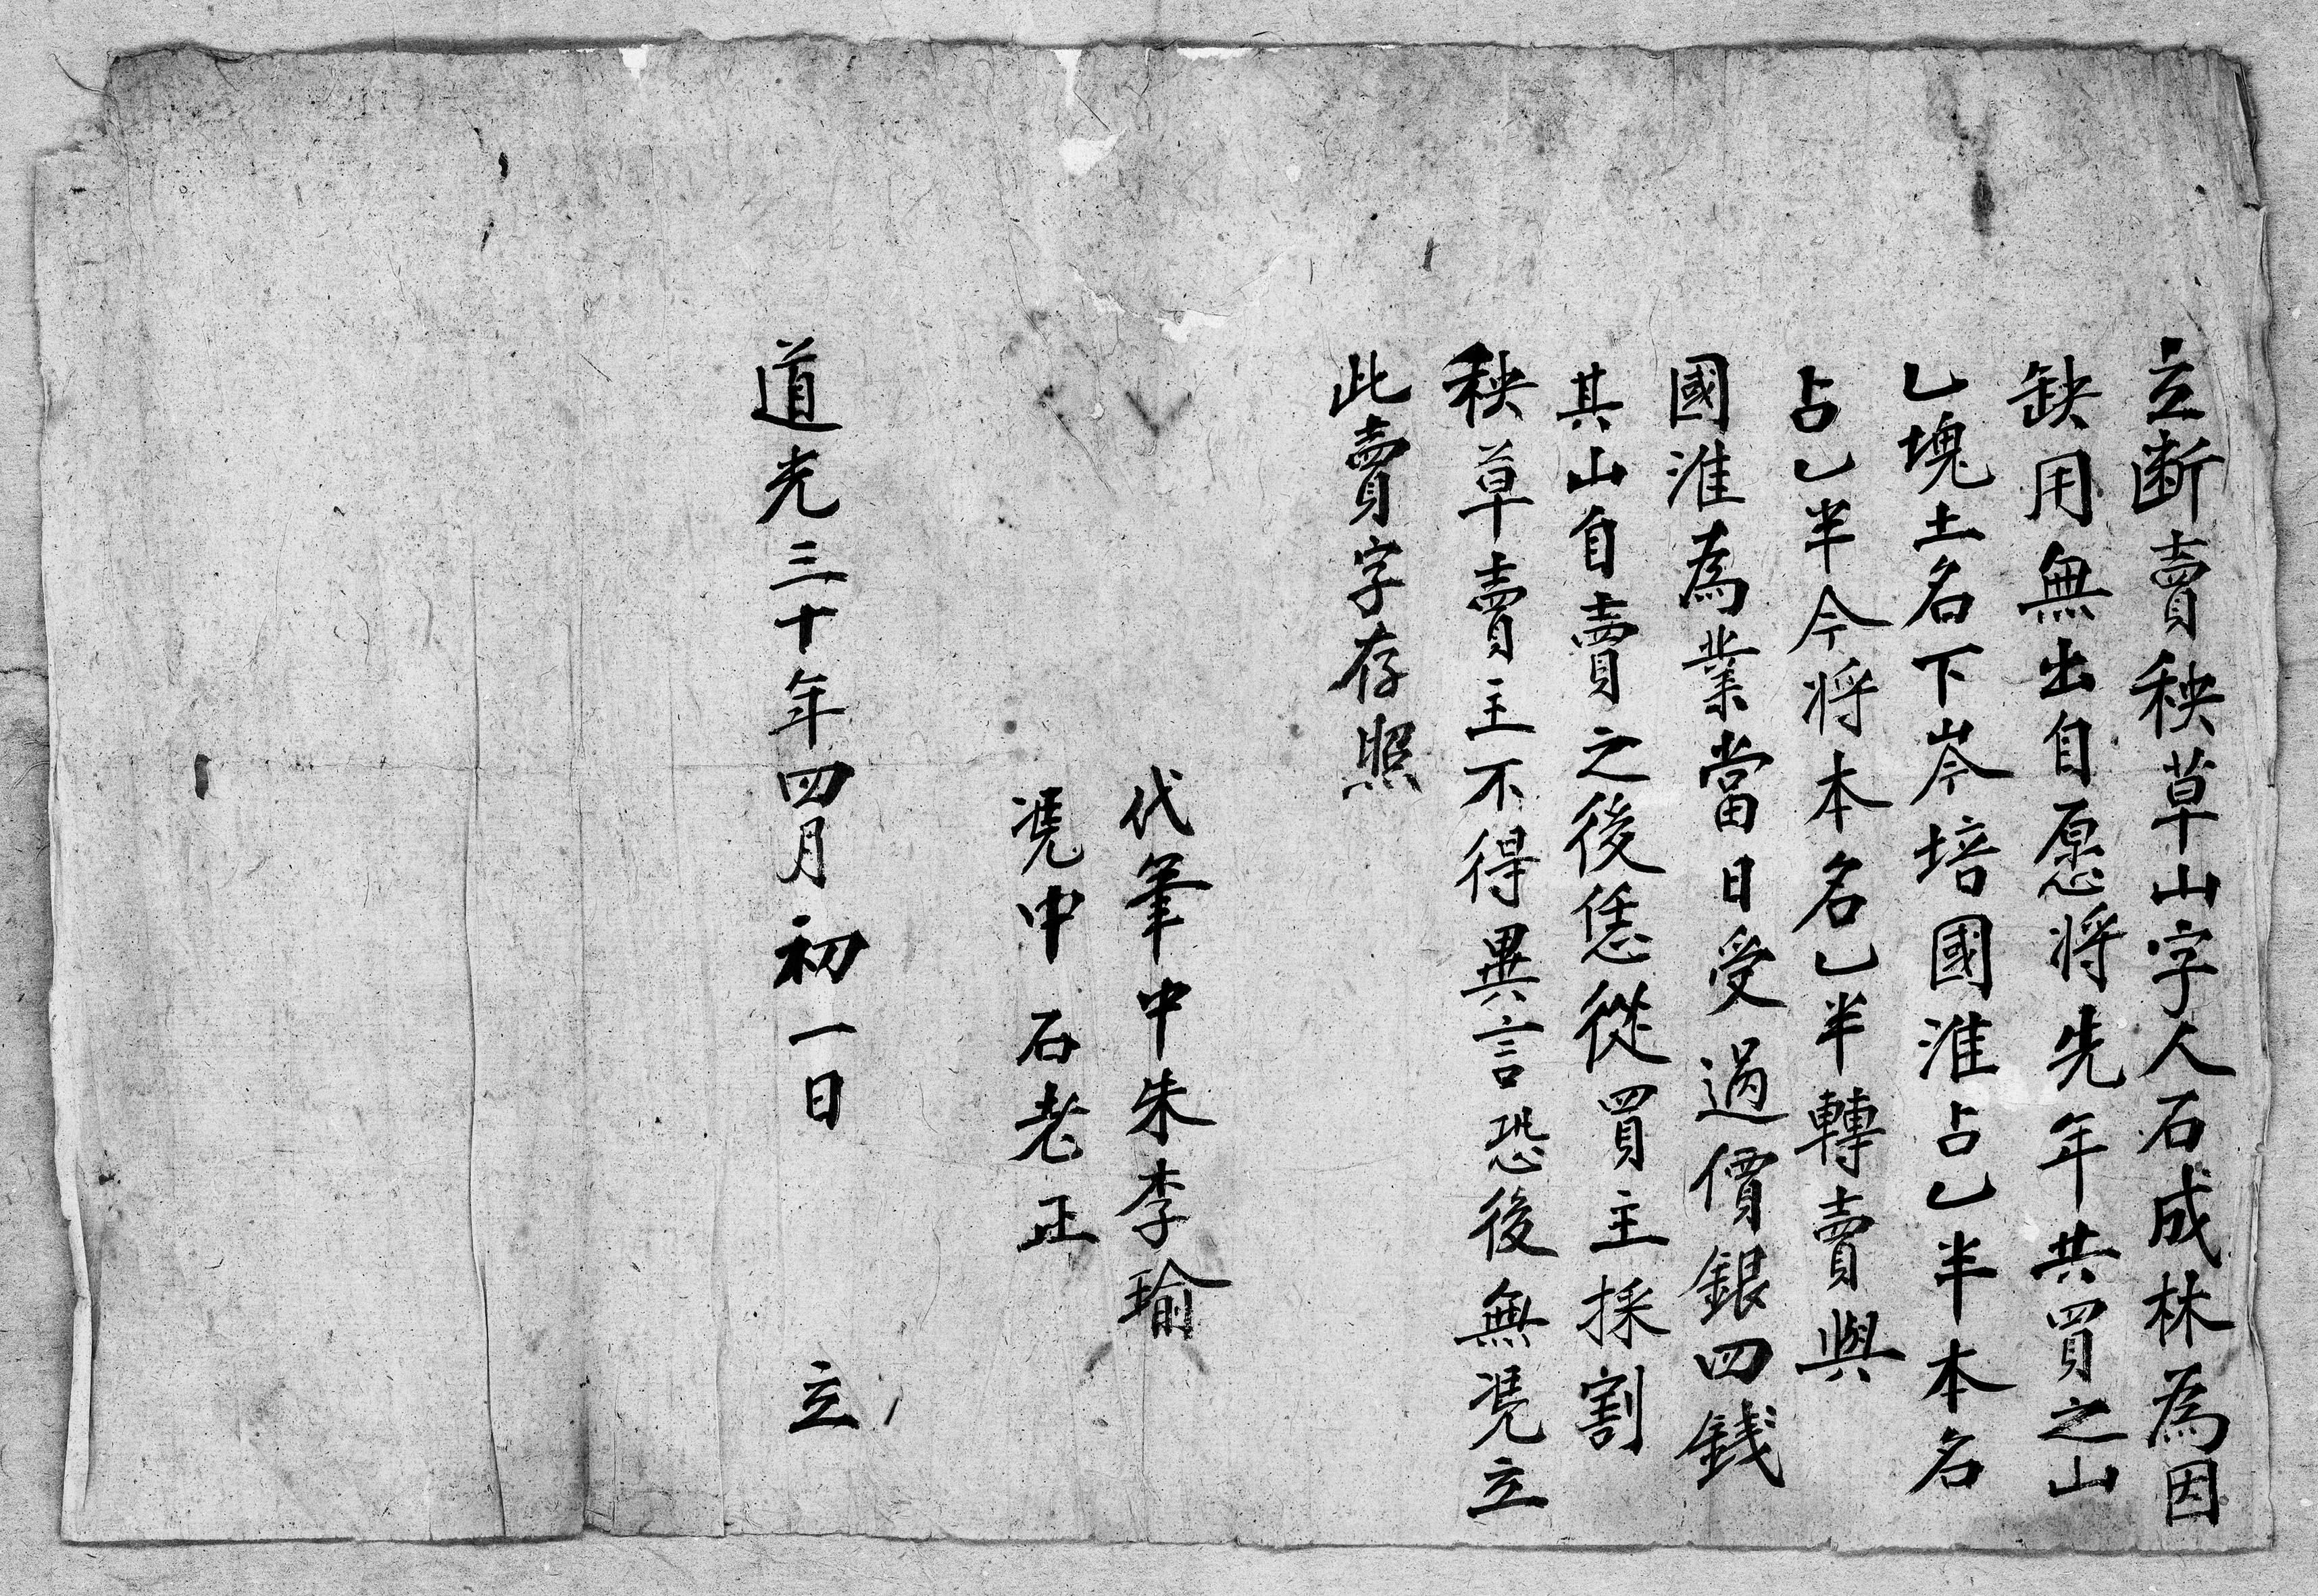 立断賣秧草山字人石成林為因
缺用無出自愿将先年共買之山
乚塊土名下岺培國淮占乚半本名
占乚半今将本名乚半轉賣與
國淮為業當日受過價銀四錢
其山自賣之後恁從買主採割
秧草賣主不得異言恐後無凴立
此賣字存照
代筆中朱李瑜
凴中石老正
道光三十年四月初一日 立